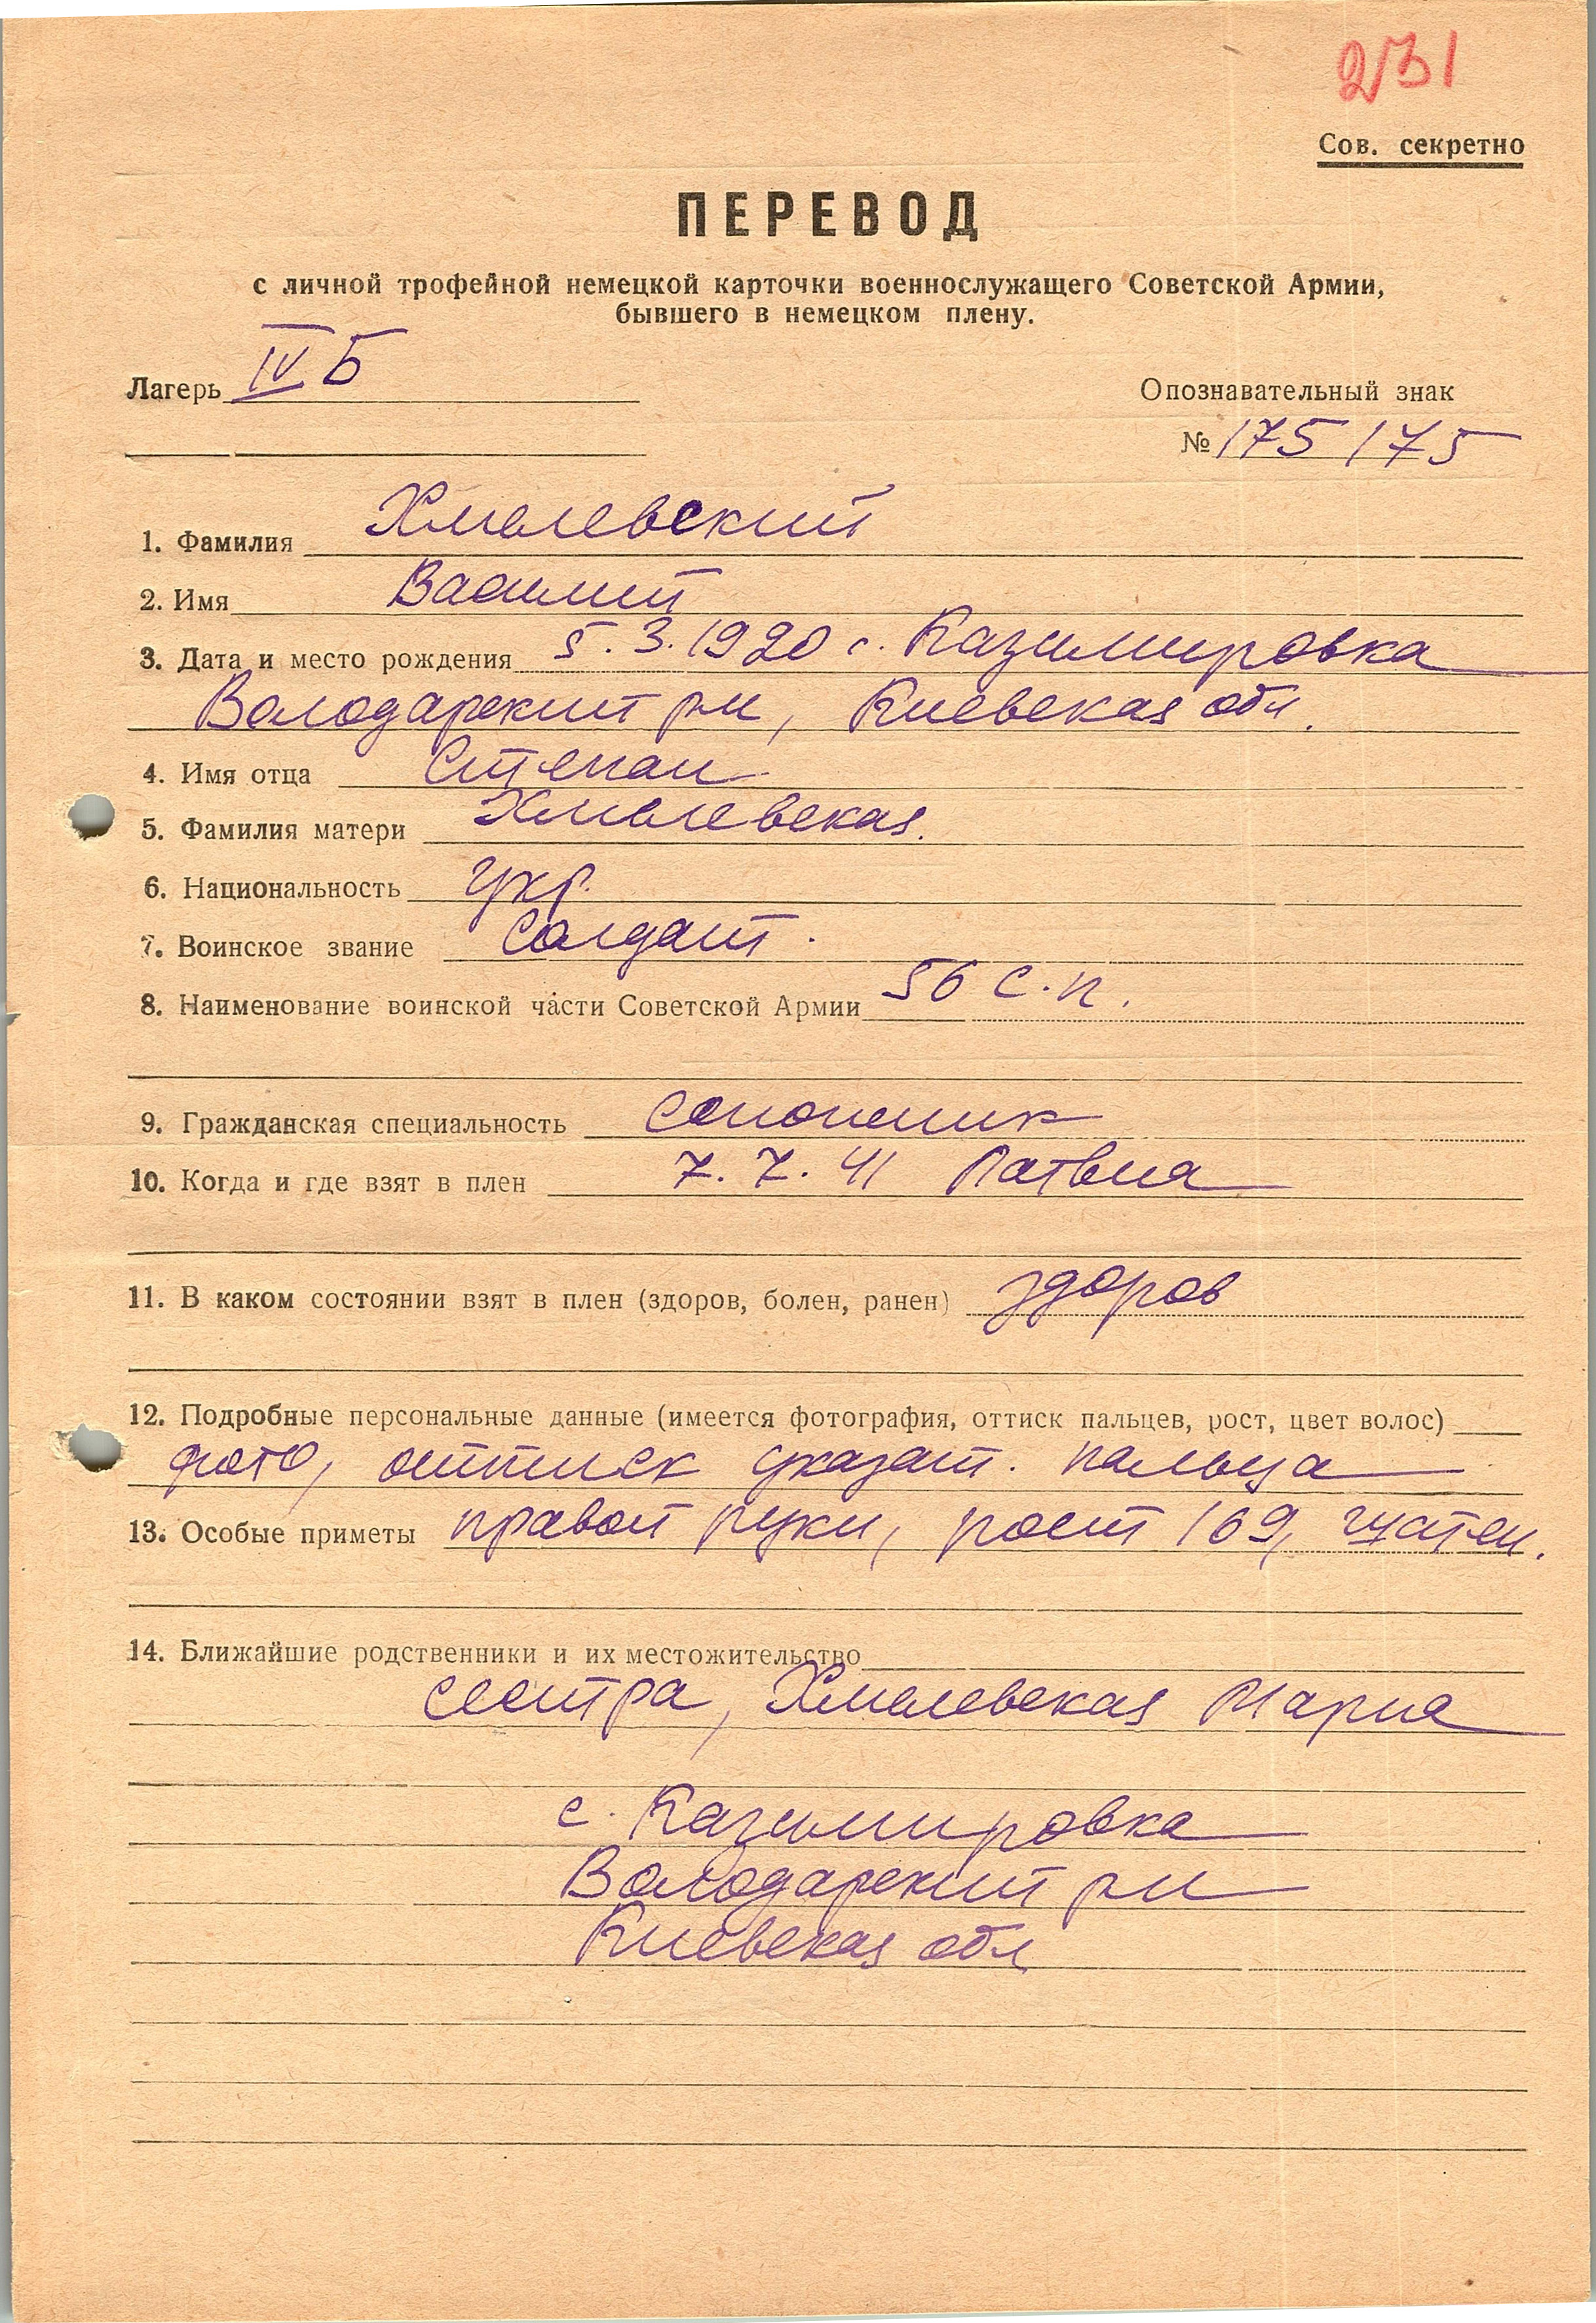 231
Сов. секретно
ПЕРЕВОД
с личной трофейной немецкой карточки военнослужащего Советской Армии,
бывшего в немецком плену.
Лагерь IV Б
Опознавательный знак
№ 175175
1. Фамилия Хмелевский
2. Имя Василий
3. Дата и место рождения 5.3.1920 с. Казимировка
Володарский р-н, Киевская обл.
4. Имя отца Степан
5. Фамилия матери Хмелевская.
6. Национальность укр.
7. Воинское звание Солдат.
8. Наименование воинской части Советской Армии 56 с.п.
9. Гражданская специальность
10. Когда и где взят в плен 7.7.41 Латвия
11. В каком состоянии взят в плен (здоров, болен, ранен) здоров
12. Подробные персональные данные (имеется фотография, оттиск пальцев, рост, цвет волос)
фото, оттиск указат. пальца
13. Особые приметы правой руки, рост 169,
14. Ближайшие родственники и их местожительство
сестра, Хмелевская Мария
с. Казимировка
Володарский р-н
Киевская обл